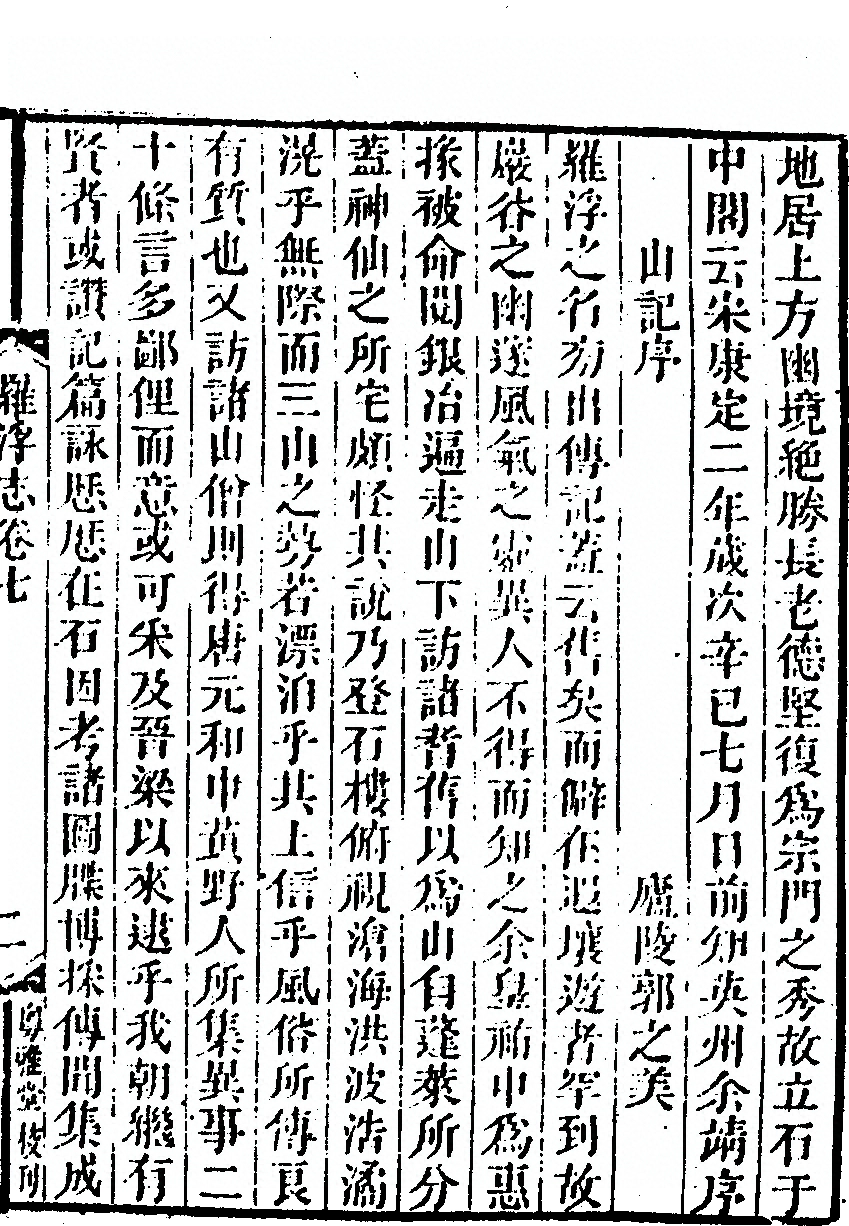 地居上方幽境絶勝長老德堅復爲宗門之秀故立石于
中閣云宋康定二年歲次辛已七月日前知英州余靖序
山記序　廬陵郭之美
羅浮之名夯出傳記蓋云售矣而僻在遐壤遊者罕到故
巖谷之幽邃風氣之靈異人不得而知之余皇祐中爲惠
掾被命閱銀冶遍走山下訪諸耆舊以爲山自蓬萊所分
蓋神仙之所宅頗怪其說乃登石樓俯視滄海洪波浩潏
滉乎無際而三山之勢若漂泊乎其上信乎風俗所傳良
有質也又訪諸山僧則得唐元和中黃野人所集異事二
十條言多鄙俚而意或可采及晉梁以來逮乎我朝繼有
賢者或讚記篇詠歷歷在石因考諸圖牒博採傳聞集成
羅浮志卷七
二
粤雅堂校刊